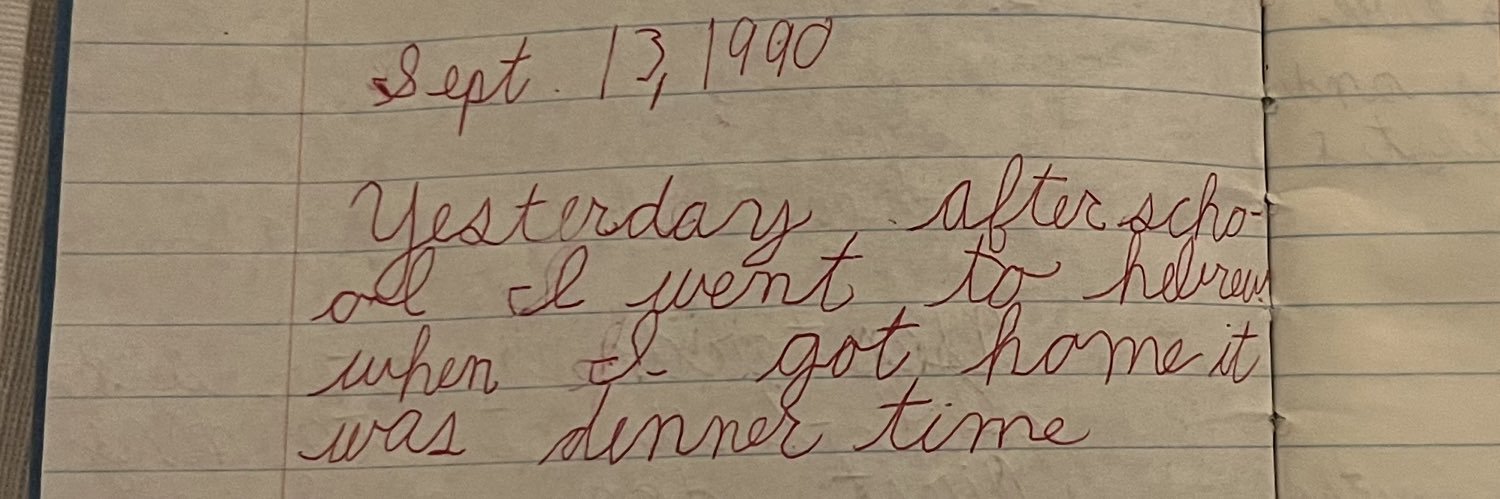 Sept. 13, 1990
Yesterday after scho-
ol I went to hebrew
when I got home it
was dinner time